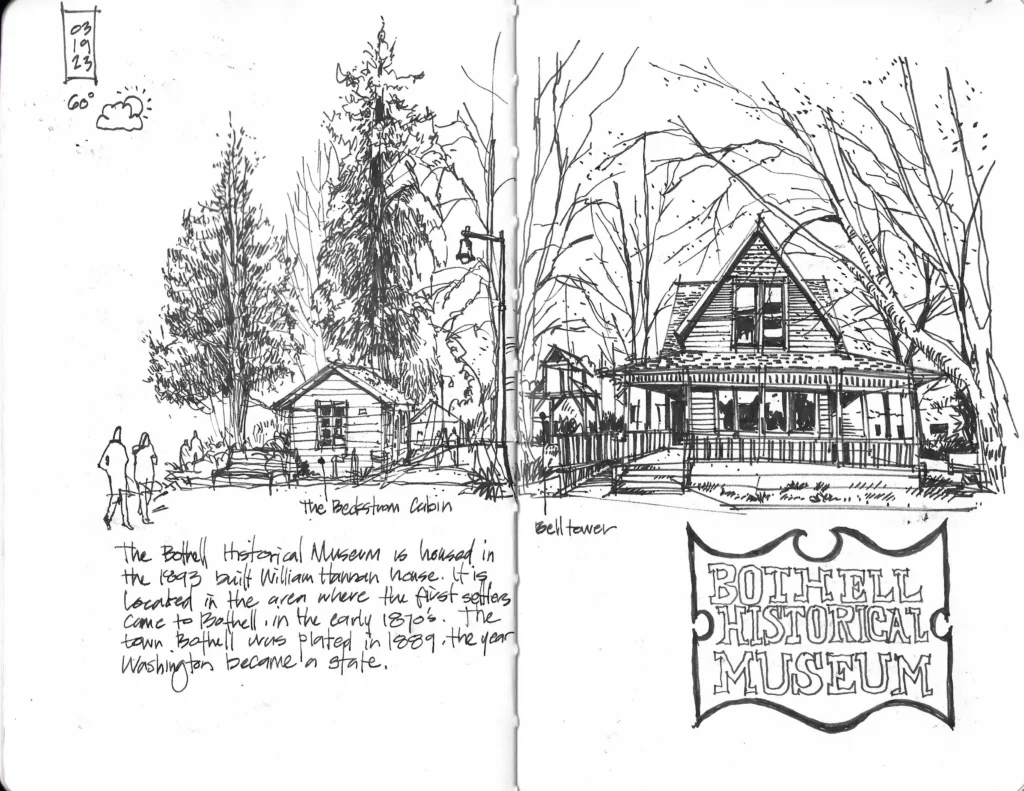 03
19
23
60°
The Beckstrom Cabin
The Bothell Historical Museum is housed in
the 1893 built William Hannan house. It is
located in the area where the first settlers
came to Bothell, in the early 1870's. The
town Bothell was plated in 1889, the year
Washington became a state.
Bell tower
BOTHELL
HISTORICAL
MUSEUM